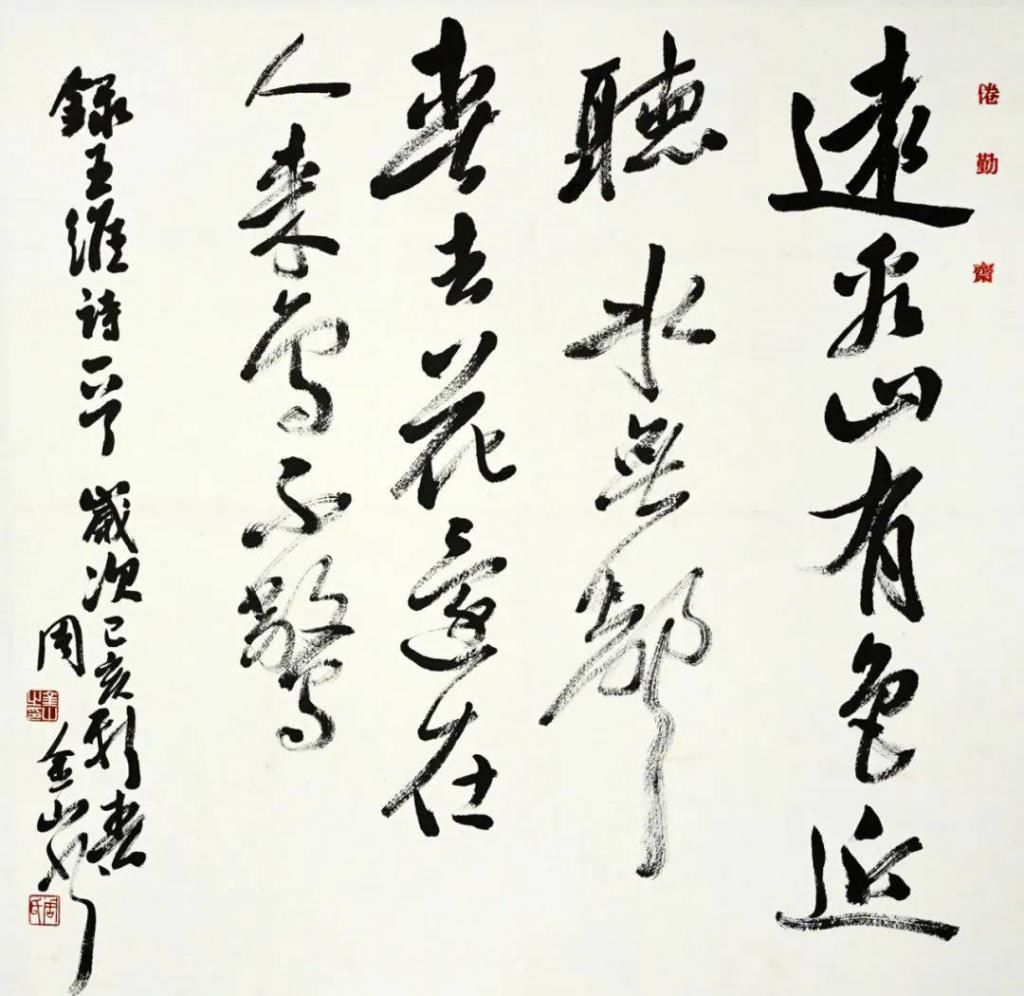 倦勤齋
遠看山有色近
聽水無聲
春去花還在
人来鳥不驚
錄王維詩一首 歲次己亥新春
周金山书
周氏